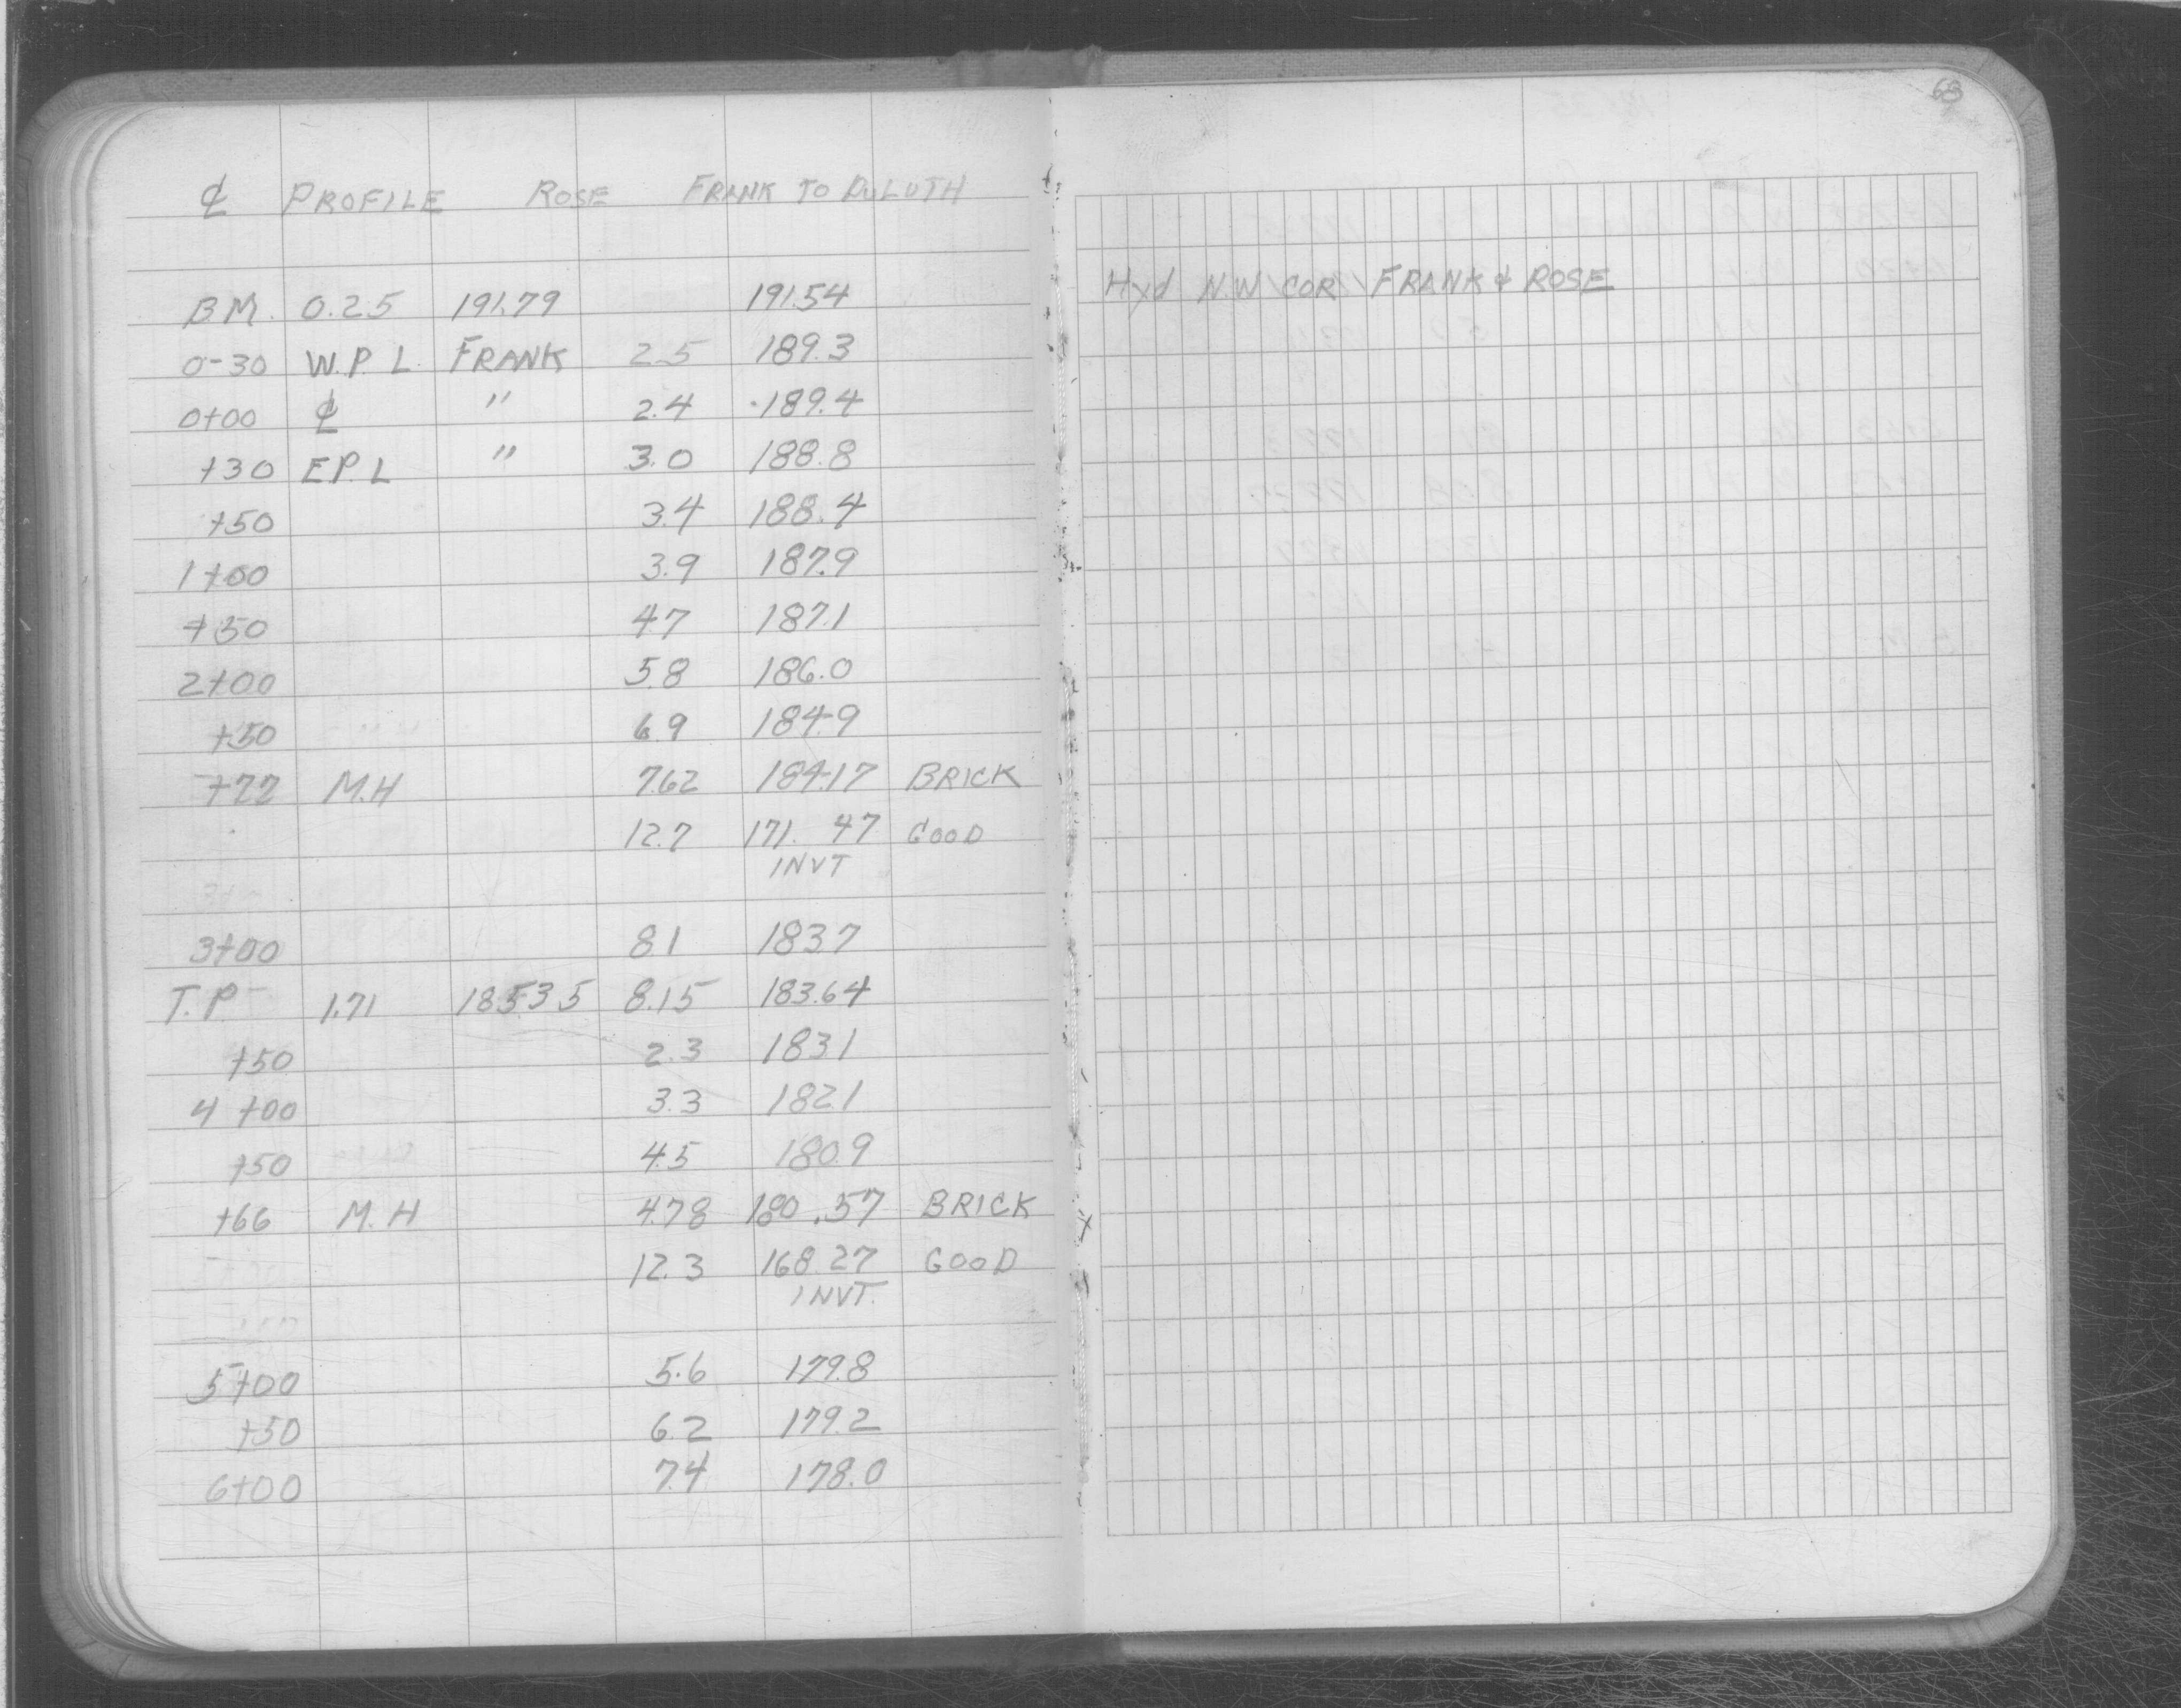 ℄ PROFILE ROSE FRANK TO DULUTH
B.M. 0.25 191.79 191.54
0-30 W.P.L. FRANK 2.5 189.3
0+00 ℄ " 2.4 189.4
+30 E.P.L " 3.0 188.8
+50 3.4 188.4
1+00 3.9 187.9
+50 4.7 187.1
2+00 5.8 186.0
+50 6.9 184.9
+22 M.H 7.62 184.17 BRICK
12.7 171.47 GOOD
INVT
3+00 8.1 183.7
T.P. 1.71 185.35 8.15 183.64
+50 2.3 183.1
4+00 3.3 182.1
+50 4.5 180.9
+66 M.H 4.78 180.57 BRICK
12.3 168.27 GOOD
INVT.
5+00 5.6 179.8
+50 6.2 179.2
6+00 7.4 178.0
68
Hyd N.W COR FRANK & ROSE